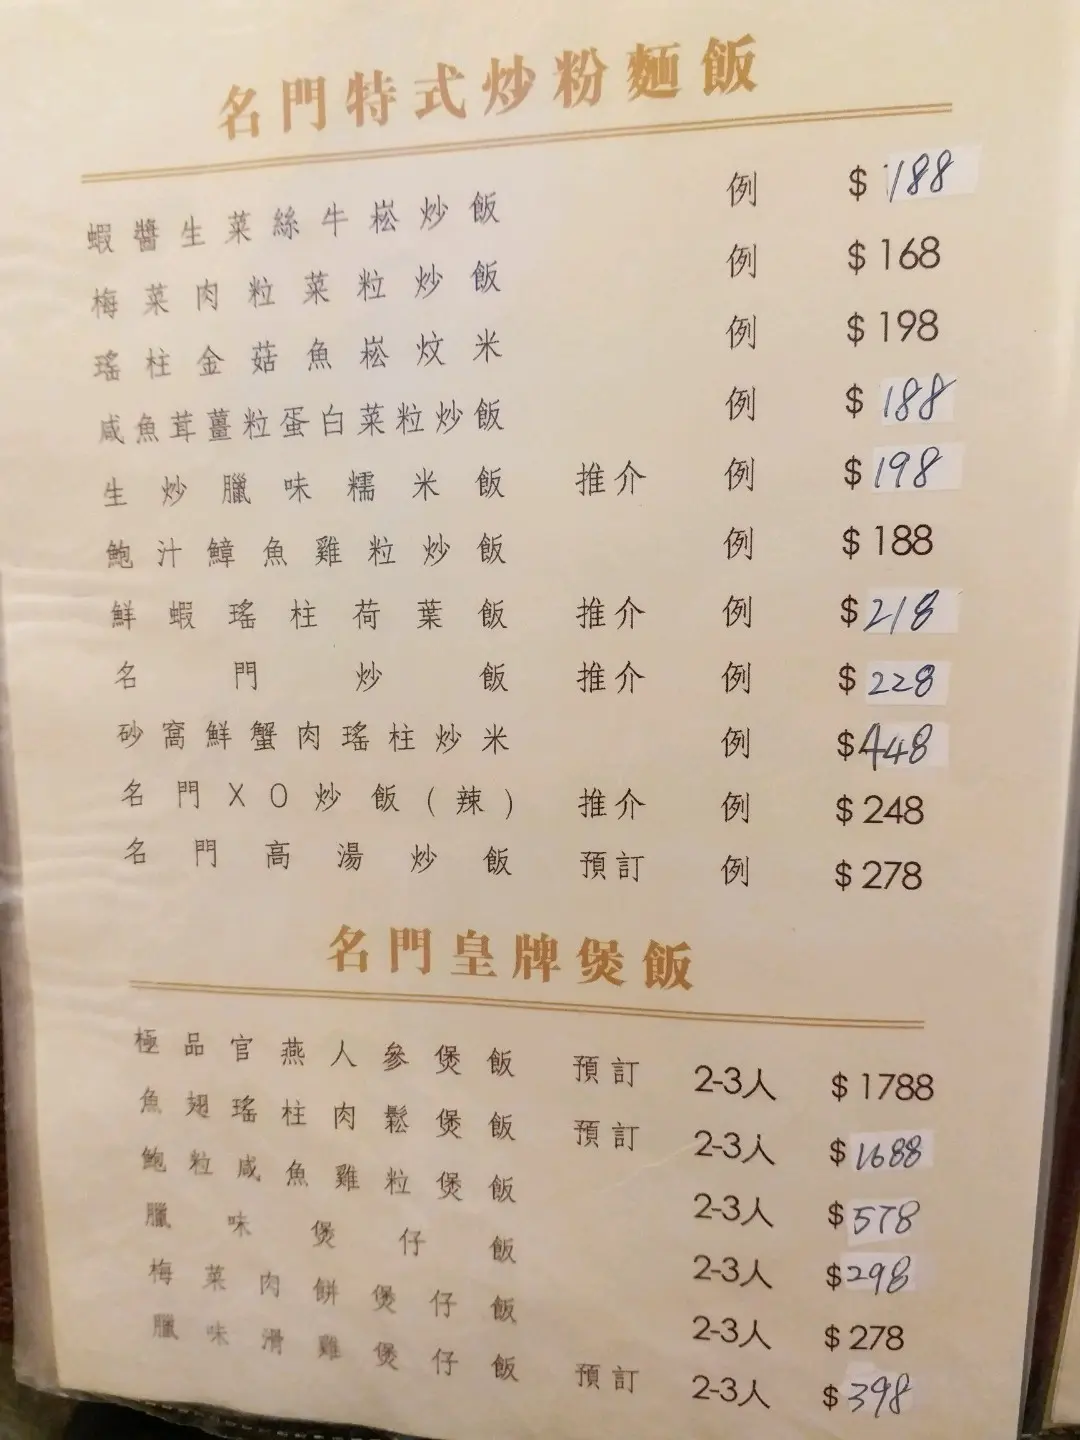 名門特式炒粉麵飯
蝦醬生菜絲牛崧炒飯 例 $188
梅菜肉粒菜粒炒飯 例 $168
瑤柱金菇魚崧炆米 例 $198
咸魚茸薑粒蛋白菜粒炒飯 例 $188
生炒臘味糯米飯 推介 例 $198
鮑汁鱆魚雞粒炒飯 例 $188
鮮蝦瑤柱荷葉飯 推介 例 $218
名門炒飯 推介 例 $228
砂窩鮮蟹肉瑤柱炒米 例 $448
名門XO炒飯(辣) 推介 例 $248
名門高湯炒飯 預訂 例 $278
名門皇牌煲飯
極品官燕人參煲飯 預訂 2-3人 $1788
魚翅瑤柱肉鬆煲飯 預訂 2-3人 $1688
鮑粒咸魚雞粒煲飯 2-3人 $578
臘味煲仔飯 2-3人 $298
梅菜肉餅煲仔飯 2-3人 $278
臘味滑雞煲仔飯 預訂 2-3人 $398